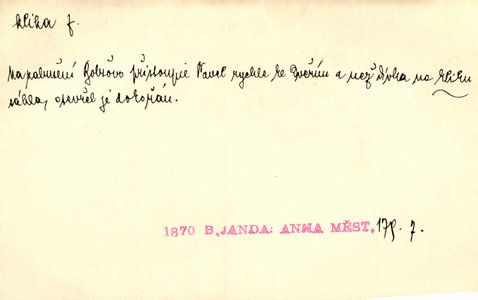 klika f.
Na pokynutí Bobšovo přistoupil Pavel rychle ke dveřím a než Divka na kliku
sáhla, otevřel je dokořán.
1870 B. JANDA: ANNA MĚST. 179. 7.